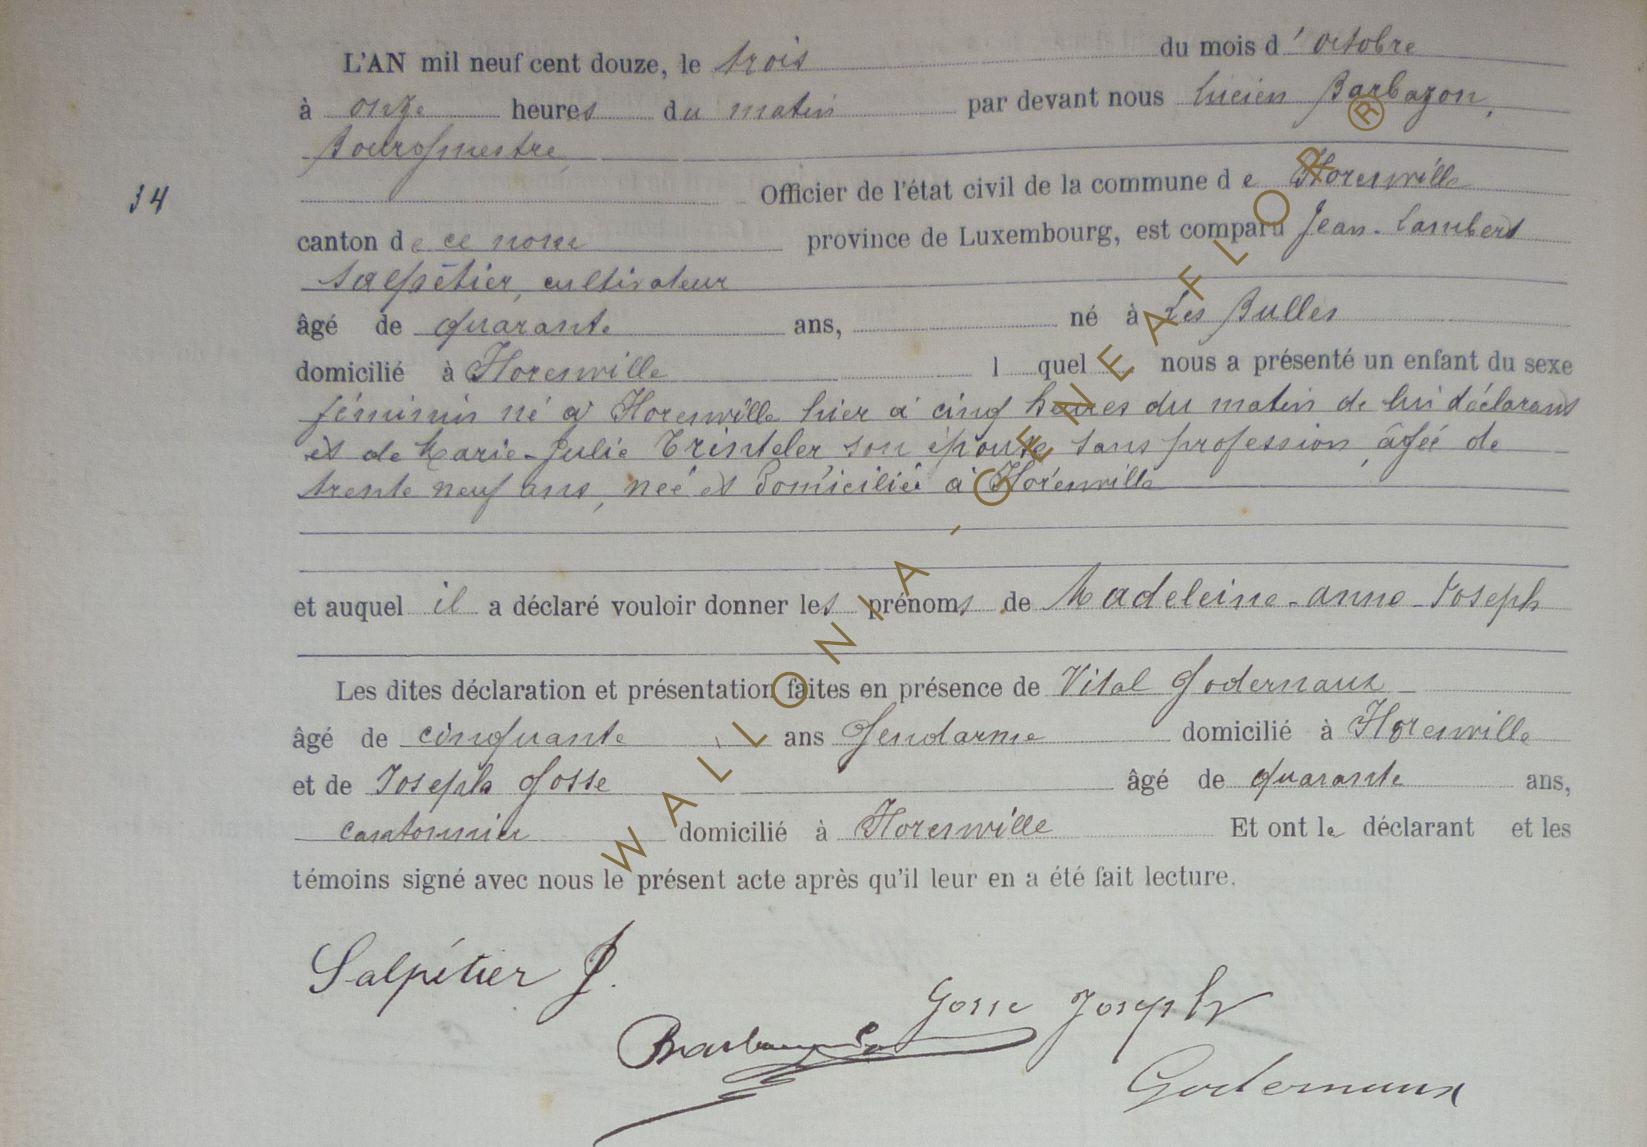 L'AN mil neuf cent douze, le trois du mois d'octobre
à onze heures du matin par devant nous Lucien Barbazon,
Bourgmestre
Officier de l'état civil de la commune de Florenville
34
canton de ce nom province de Luxembourg, est comparu Jean-Lambert
Salpétier, cultivateur
âgé de quarante ans, né à Les Bulles
domicilié à Florenville l quel nous a présenté un enfant du sexe
féminin né à Florenville hier à cinq heures du matin de lui déclarant
et de Marie-Julie Trinteler son épouse sans profession, âgée de
trente neuf ans, née et domiciliée à Florenville
et auquel il a déclaré vouloir donner les prénoms de Madeleine-Anne-Joseph
Les dites déclaration et présentation faites en présence de Vital Godernaux
âgé de cinquante ans Gendarme domicilié à Florenville
et de Joseph Gosse âgé de quarante ans,
cantonnier domicilié à Florenville Et ont le déclarant et les
témoins signé avec nous le présent acte après qu'il leur en a été fait lecture.
Salpétier J.
Gosse Joseph
Barbazon
Godernaux
WALLONIA-GENEAFLOR ®